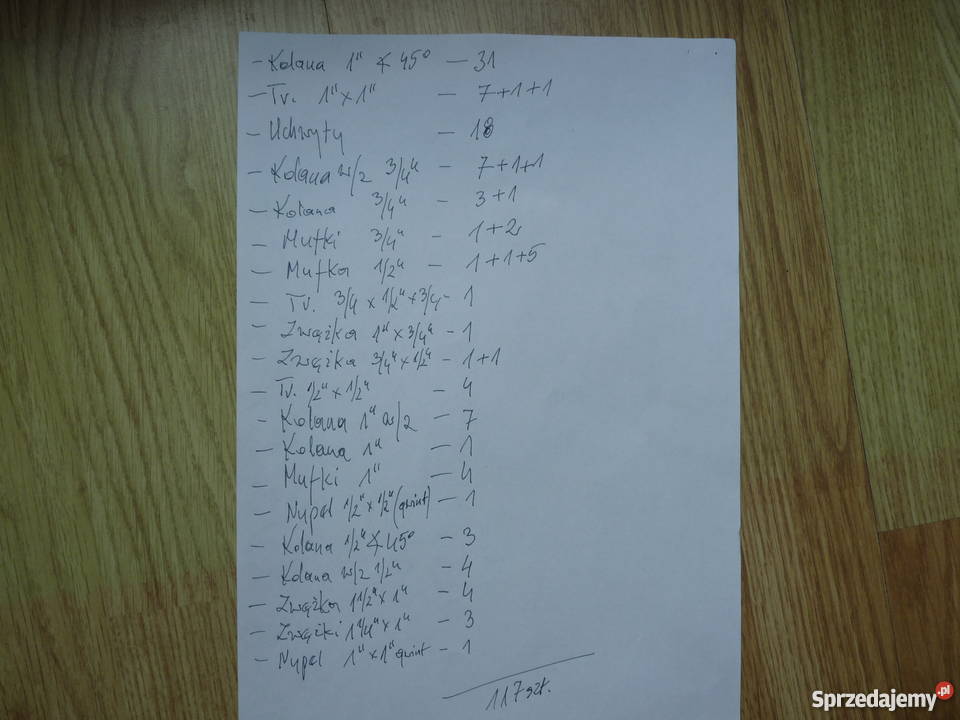 - Kolana 1" ∢ 45° - 31
- Tr. 1" x 1" - 7+1+1
- Uchwyty - 18
- Kolana w/z 3/4" - 7+1+1
- Kolana 3/4" - 3+1
- Mufki 3/4" - 1+2
- Mufka 1/2" - 1+1+5
- Tr. 3/4 x 1/2" x 3/4 - 1
- Zwężka 1" x 3/4" - 1
- Zwężka 3/4" x 1/2" - 1+1
- Tr. 1/2" x 1/2" - 4
- Kolana 1" w/z - 7
- Kolana 1" - 1
- Mufki 1" - 4
- Nypel 1/2" x 1/2" (gwint) - 1
- Kolana 1/2" ∢ 45° - 3
- Kolana w/z 1/2" - 4
- Zwężka 1 1/2" x 1" - 4
- Zwężki 1 1/4" x 1" - 3
- Nypel 1" x 1" gwint - 1
117 szt.
Sprzedajemy.pl